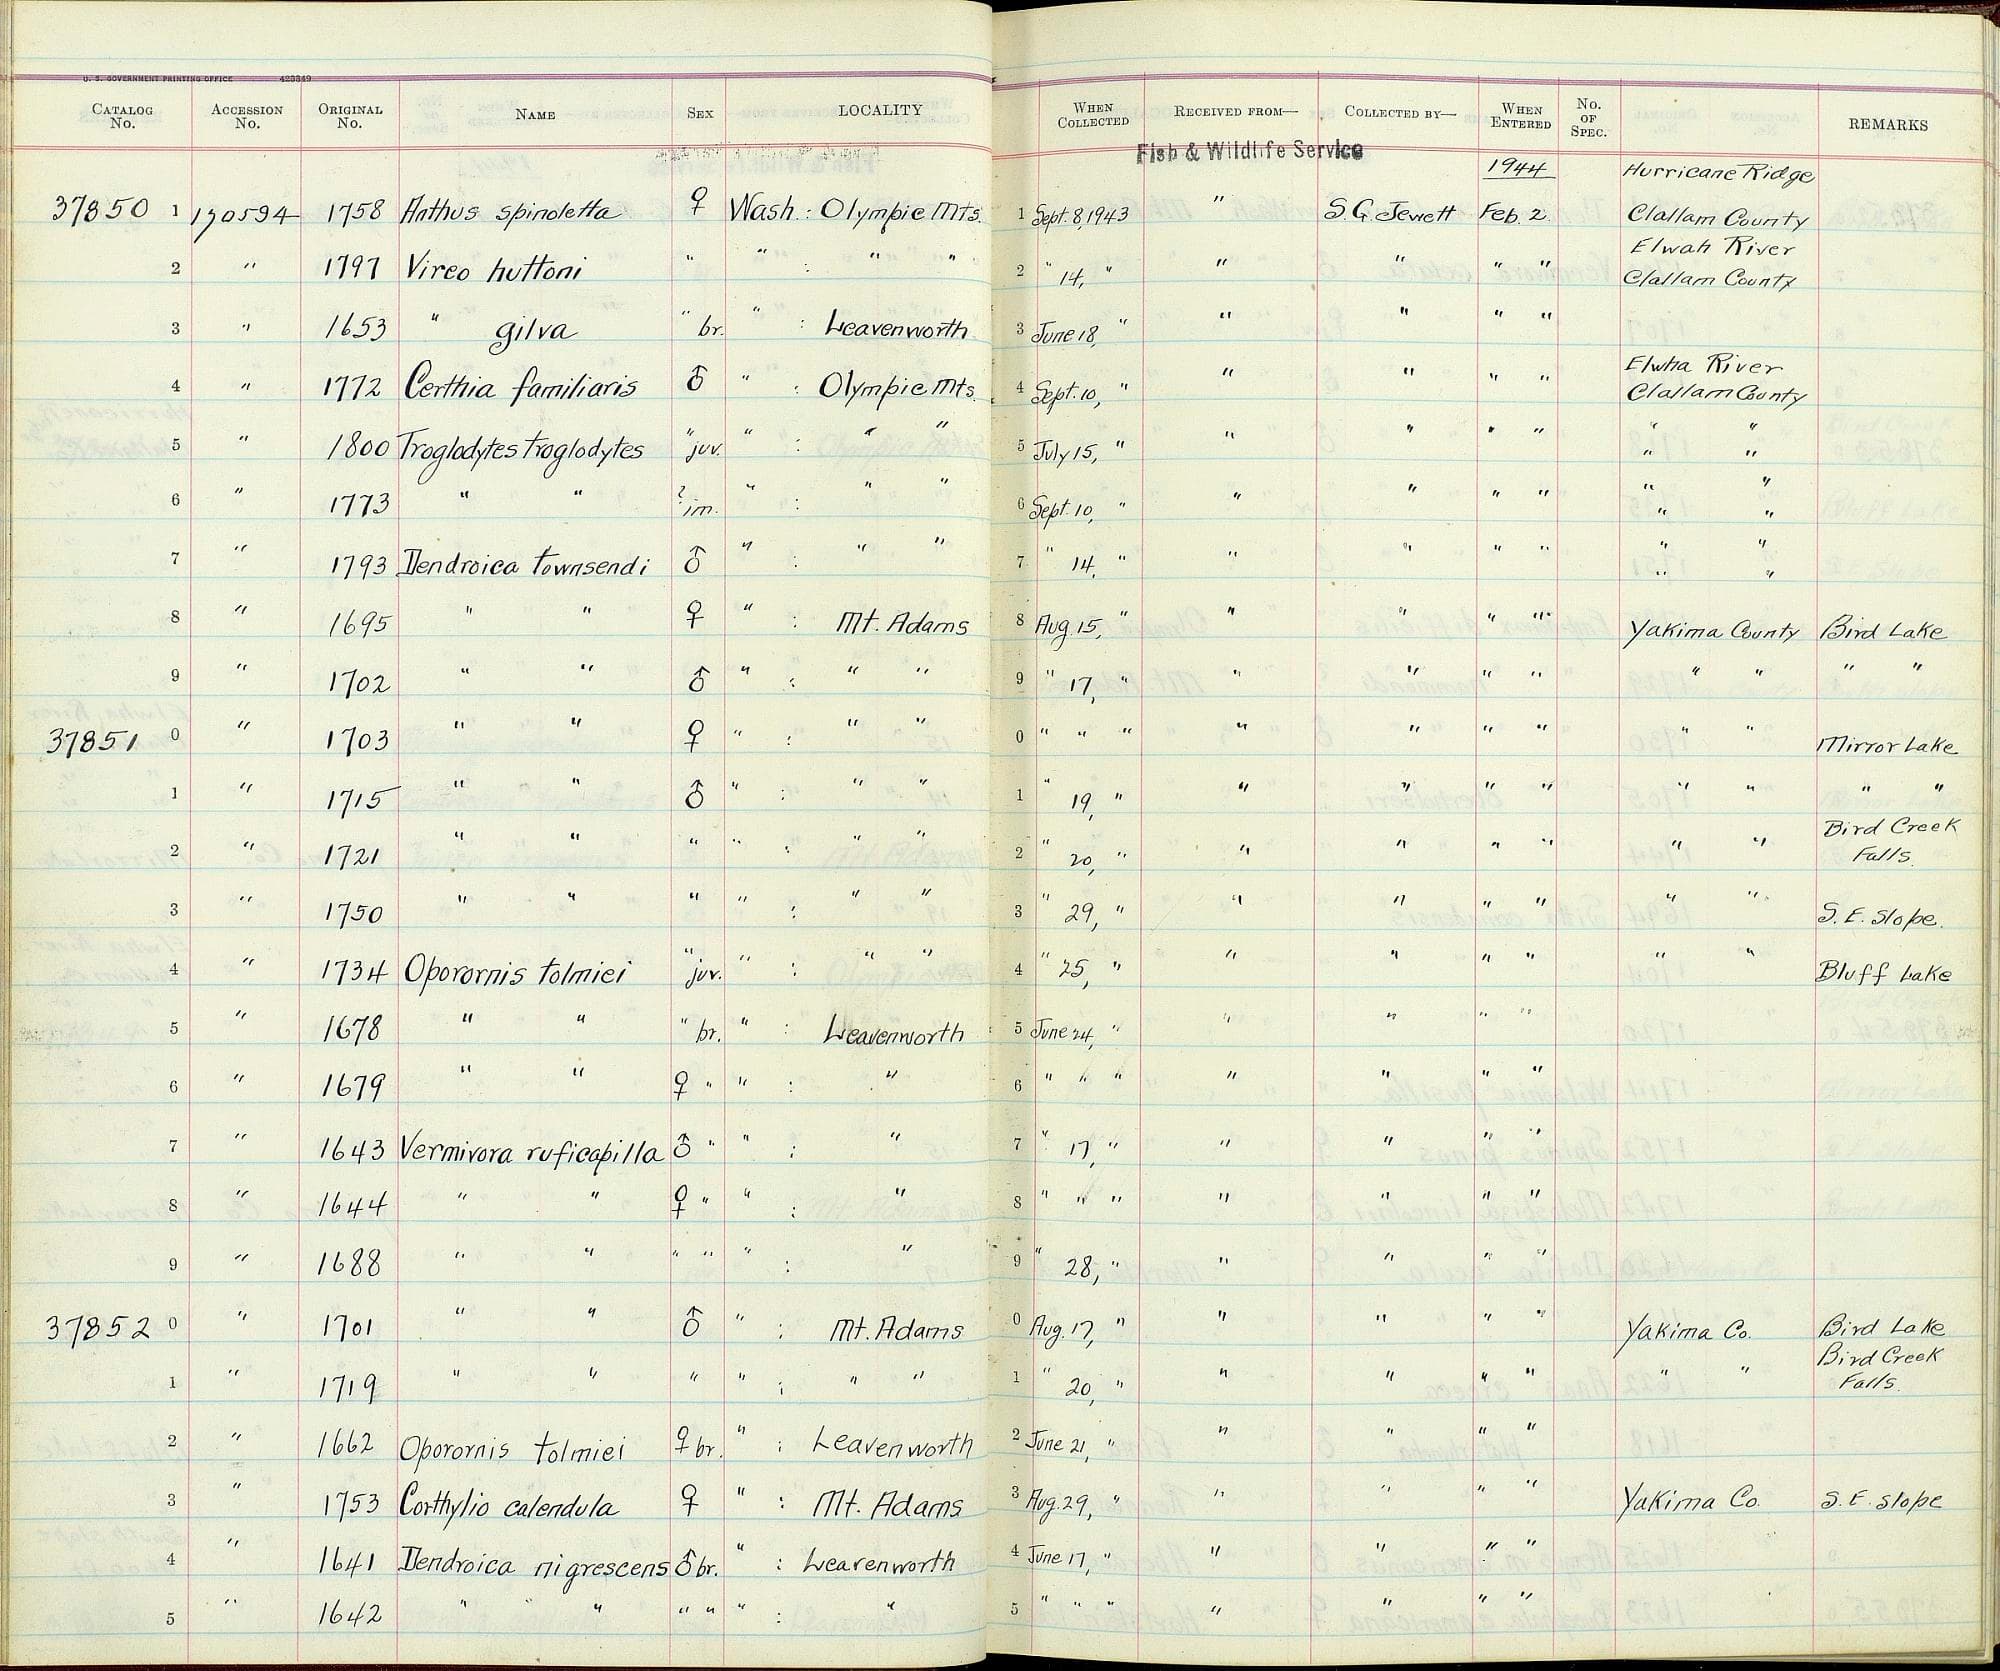 U. S. GOVERNMENT PRINTING OFFICE 423349
CATALOG No. ACCESSION No. ORIGINAL No. NAME SEX LOCALITY WHEN COLLECTED RECEIVED FROM— COLLECTED BY— WHEN ENTERED No. OF SPEC. REMARKS
Fish & Wildlife Service
1944 Hurricane Ridge
37850 1 170594 1758 Anthus spinoletta ♀ Wash : Olympic Mts. 1 Sept. 8, 1943 " S.G. Jewett Feb. 2 Clallam County
Elwah River
2 " 1797 Vireo huttoni " " : " " 2 " 14, " " " " " Clallam County
3 " 1653 " gilva " br. " : Leavenworth 3 June 18, " " " " "
Elwha River
4 " 1772 Certhia familiaris ♂ " : Olympic Mts. 4 Sept. 10, " " " " " Clallam County
5 " 1800 Troglodytes troglodytes " juv. " : " " 5 July 15, " " " " " " "
" "
6 " 1773 " " ? im. " : " " 6 Sept. 10, " " " " " " "
" "
7 " 1793 Dendroica townsendi ♂ " : " " 7 " 14, " " " " " " "
" "
8 " 1695 " " ♀ " : Mt. Adams 8 Aug. 15, " " " " " Yakima County Bird Lake
9 " 1702 " " ♂ " : " " 9 " 17, " " " " " " " " "
37851 0 " 1703 " " ♀ " : " " 0 " " " " " " " " " Mirror Lake
1 " 1715 " " ♂ " : " " 1 " 19, " " " " " " " " "
Bird Creek
2 " 1721 " " " " : " " 2 " 20, " " " " " " " Falls.
3 " 1750 " " " " : " " 3 " 29, " " " " " " " S. E. Slope.
4 " 1734 Oporornis tolmiei " juv. " : " " 4 " 25, " " " " " " " Bluff Lake
5 " 1678 " " " br. " : Leavenworth 5 June 24, " " " " "
6 " 1679 " " ♀ " " : " 6 " " " " " " "
7 " 1643 Vermivora ruficapilla ♂ " " : " 7 " 17, " " " " "
8 " 1644 " " ♀ " " : " 8 " " " " " " "
9 " 1688 " " " " " : " 9 " 28, " " " " "
37852 0 " 1701 " " ♂ " : Mt. Adams 0 Aug. 17, " " " " " Yakima Co. Bird Lake
Bird Creek
1 " 1719 " " " " : " " 1 " 20, " " " " " " " Falls.
2 " 1662 Oporornis tolmiei ♀ br. " : Leavenworth 2 June 21, " " " " "
3 " 1753 Corthylio calendula ♀ " : Mt. Adams 3 Aug. 29, " " " " " Yakima Co. S. E. slope
4 " 1641 Dendroica nigrescens ♂ br. " : Leavenworth 4 June 17, " " " " "
5 " 1642 " " " " " : " 5 " " " " " " "